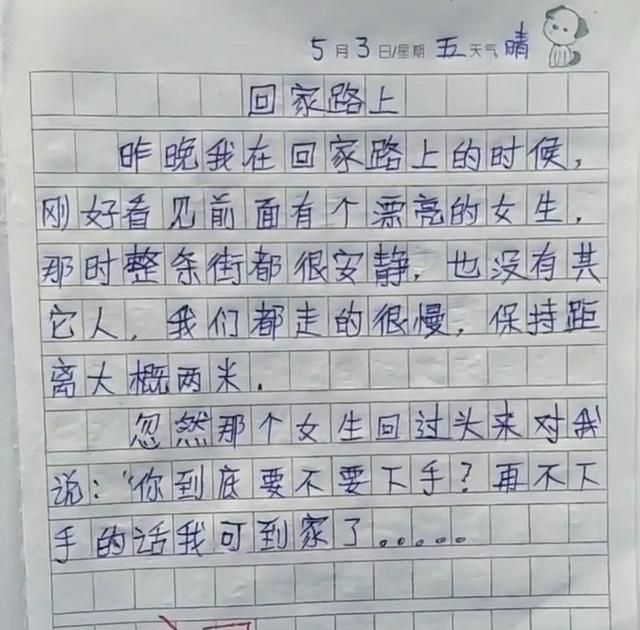 5月3日/星期五天气晴
回家路上
昨晚我在回家路上的时候，
刚好看见前面有个漂亮的女生，
那时整条街都很安静，也没有共
它人，我们都走的很慢，保持距
离大概两米．
忽然那个女生回过头来对我
说：“你到底要不要下手？再不下
手的话我可到家了。。。。。